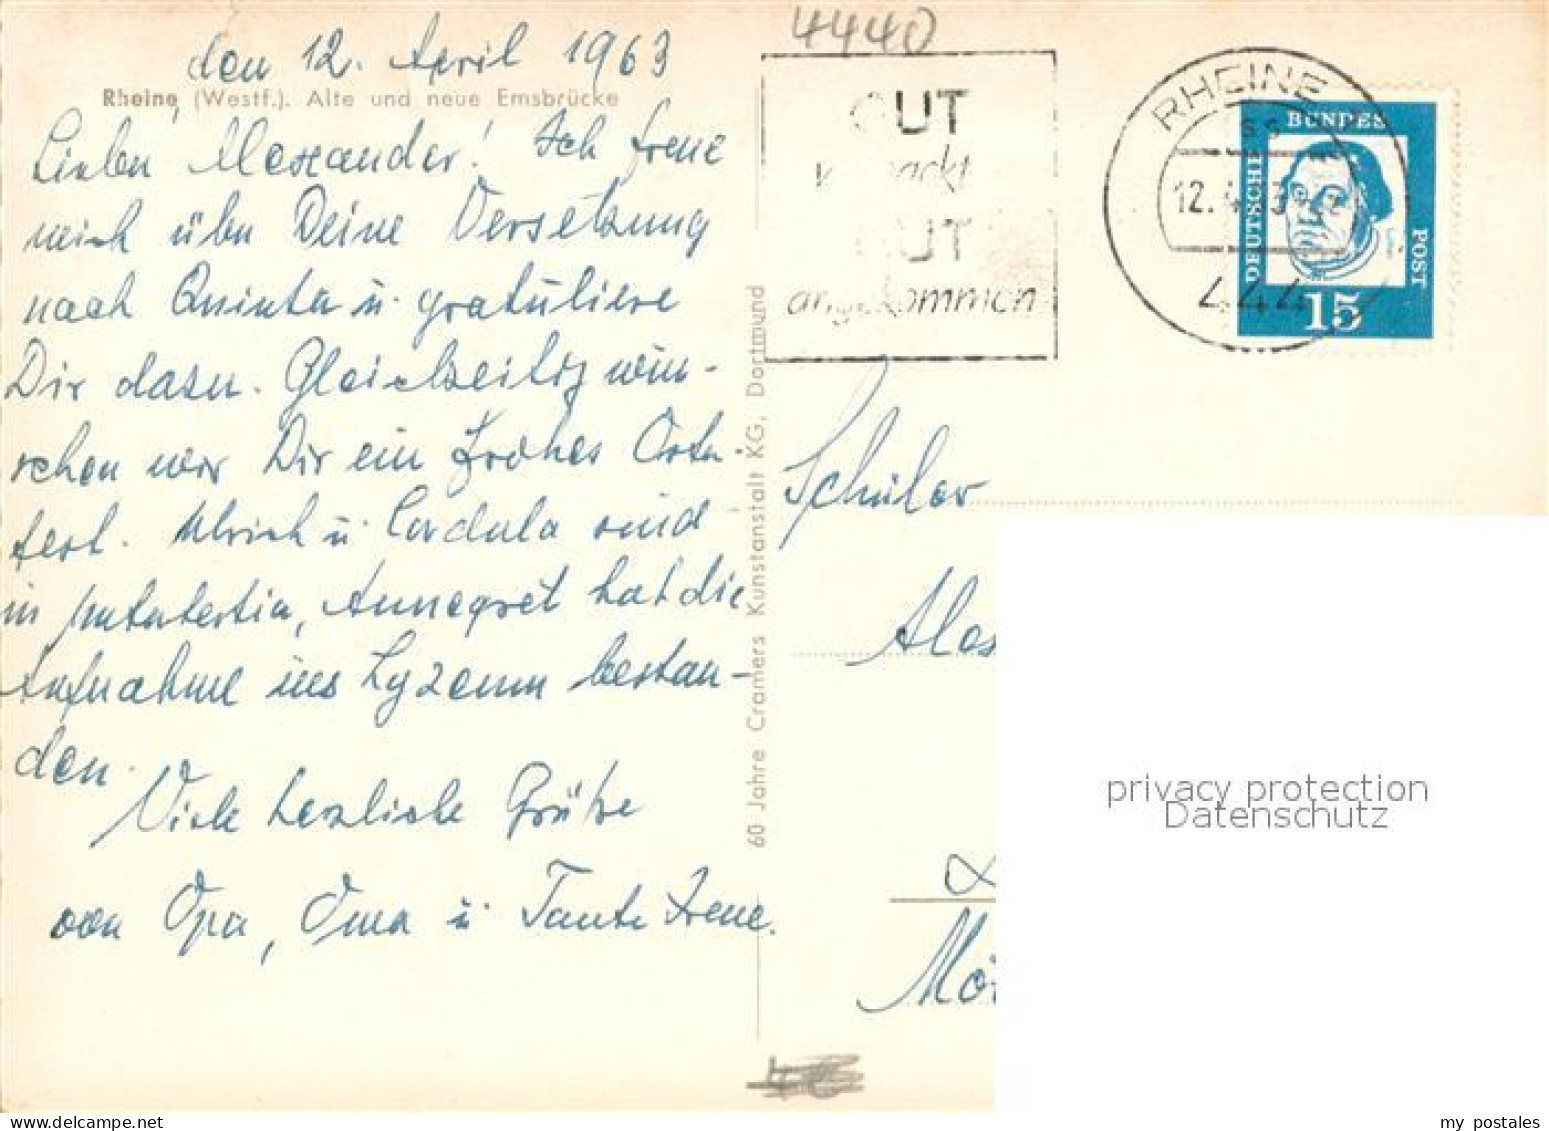 4440
den 12. April 1963
Rheine (Westf.). Alte und neue Emsbrücke
Lieber Alexander! Ich freue
mich über Deine Versetzung
nach Quinta u. gratuliere
Dir dazu. Gleichzeitig wün-
schen wir Dir ein frohes Oster-
fest. Ulrich u. Cordula sind
in Untertertia, Annegret hat die
Aufnahme ins Lyzeum bestan-
den.
Viele herzliche Grüße
von Opa, Oma u. Tante Irene.
60 Jahre Cramers Kunstanstalt KG, Dortmund
GUT
verpackt
GUT
angekommen
RHEINE
12.4.63
444
DEUTSCHE
BUNDES
POST
15
Schüler
Alex
Mör
privacy protection
Datenschutz
my postales